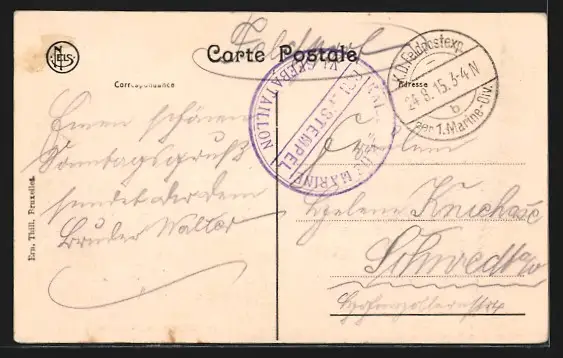 Feldpost
Carte Postale
Correspondance
Adresse
NELS
K.D. Feldpostexp.
24.8.15. 3-4 N
b
der 1. Marine-Div.
BRIEFSTEMPEL
MARINE
Einen schönen
Sonntagsgruß
sendet dir dein
Bruder Walter
Fräulein
Helene
Schwedt a/o
Hohenzollernstr
Ern. Thill, Bruxelles.